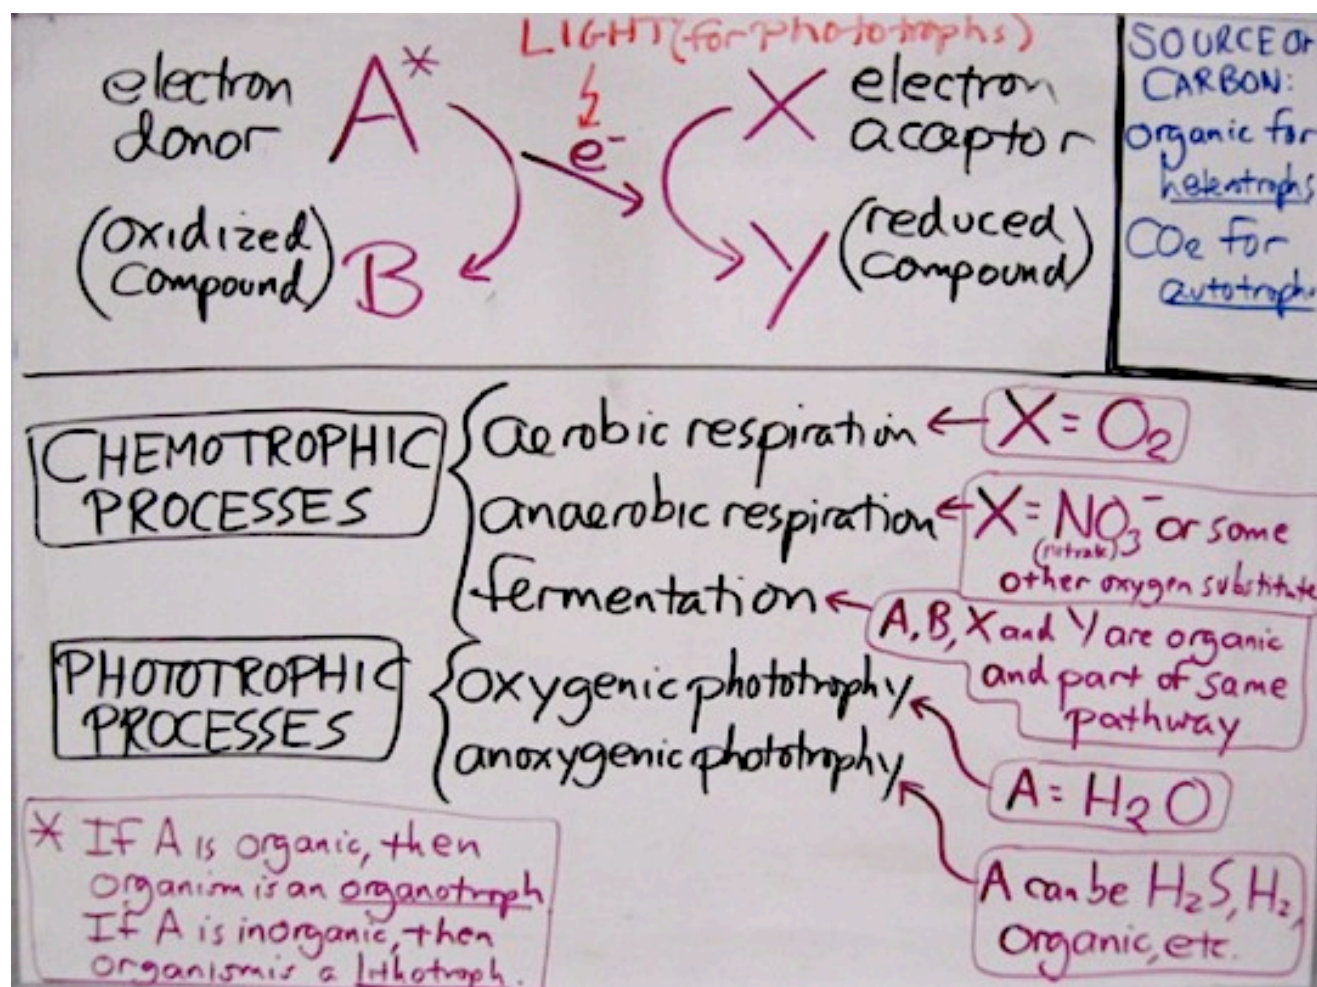 LIGHT (for phototrophs)
electron
donor
A*
e-
X
electron
acceptor
(oxidized
compound)
B
Y
(reduced
compound)
SOURCE OF
CARBON:
organic for
heterotrophs
CO2 for
autotroph
CHEMOTROPHIC
PROCESSES
aerobic respiration
X = O2
anaerobic respiration
X = NO3- or some
(nitrate)
other oxygen substitute
fermentation
A, B, X and Y are organic
and part of same
pathway
PHOTOTROPHIC
PROCESSES
oxygenic phototrophy
anoxygenic phototrophy
A = H2O
A can be H2S, H2,
organic, etc.
* If A is organic, then
organism is an organotroph
If A is inorganic, then
organism is a lithotroph.